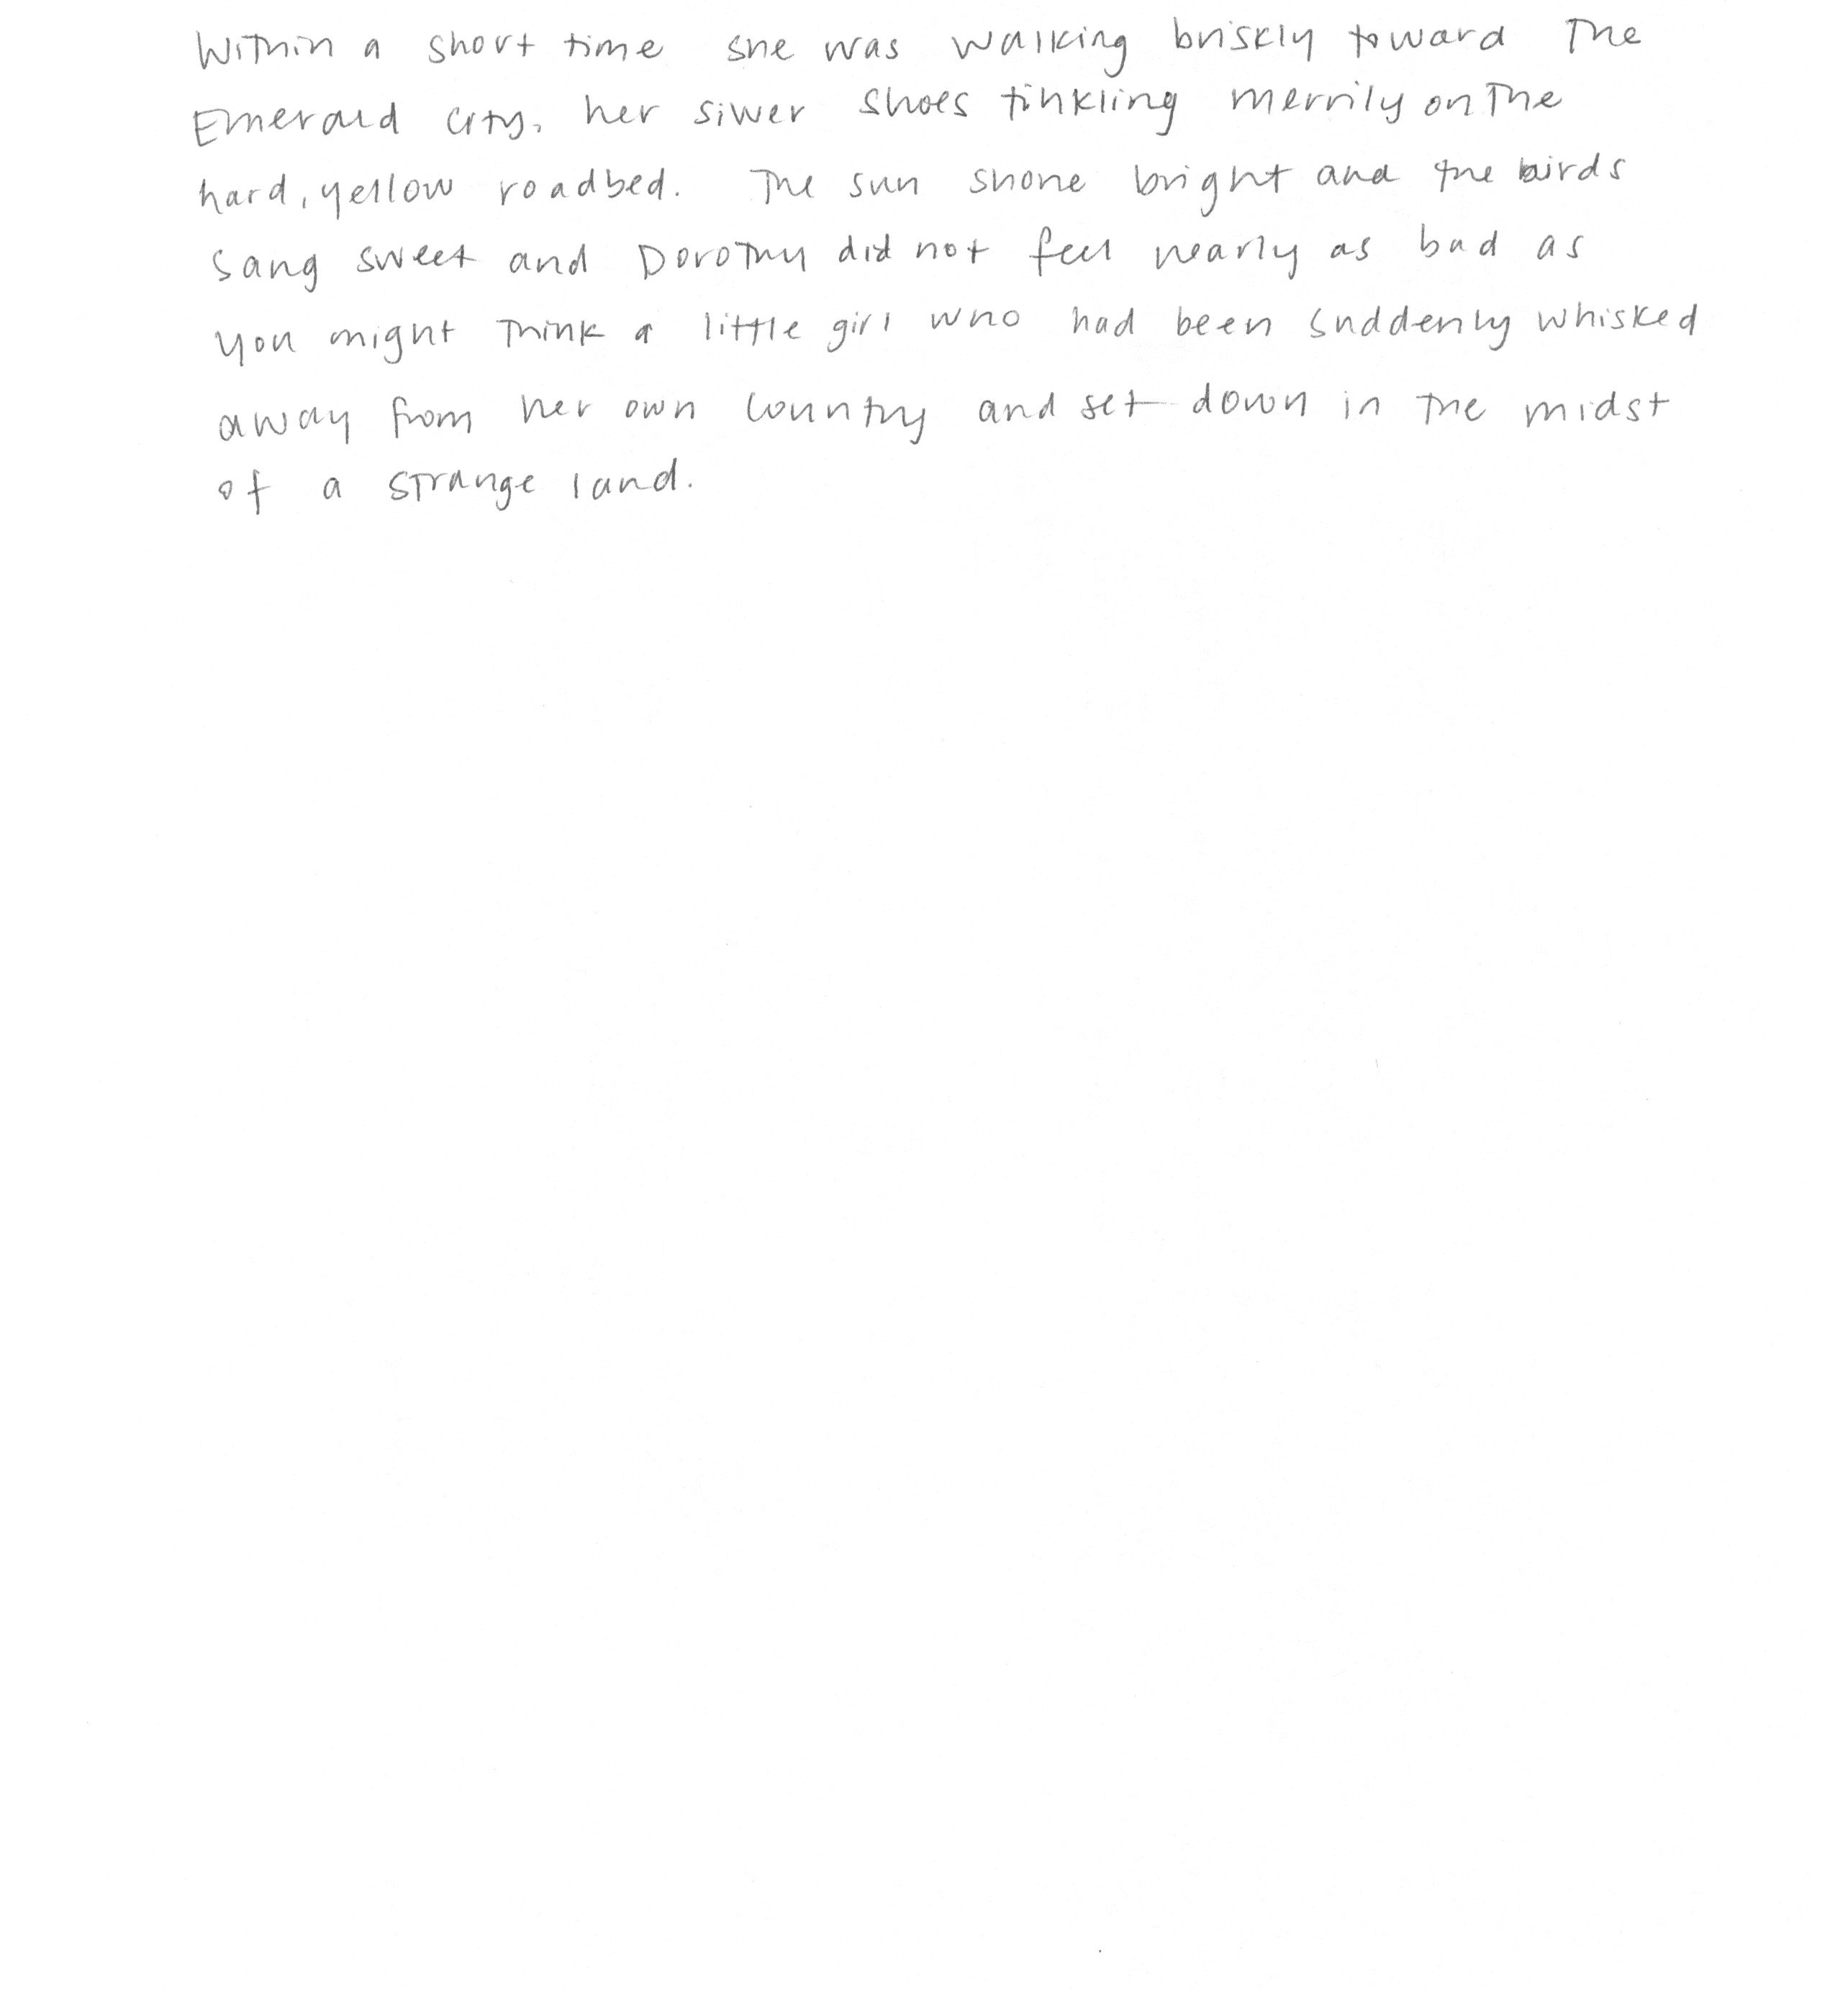 Within a short time she was walking briskly toward the
Emerald City, her silver shoes tinkling merrily on the
hard, yellow roadbed. The sun shone bright and the birds
sang sweet and Dorothy did not feel nearly as bad as
you might think a little girl who had been suddenly whisked
away from her own country and set down in the midst
of a strange land.